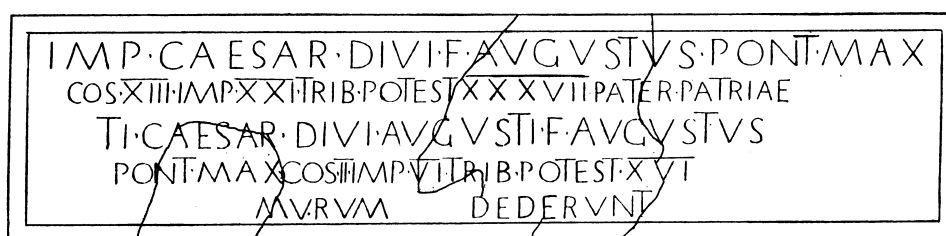 IMP·CAESAR·DIVI·F·AVGVSTVS·PONT·MAX
COS·XIII·IMP·XXI·TRIB·POTEST XXXVII PATER·PATRIAE
TI·CAESAR·DIVI·AVGVSTI·F·AVGVSTVS
PONT·MAX COS·II·IMP·VI·TRIB·POTEST·XVI
MVRVM DEDERVNT